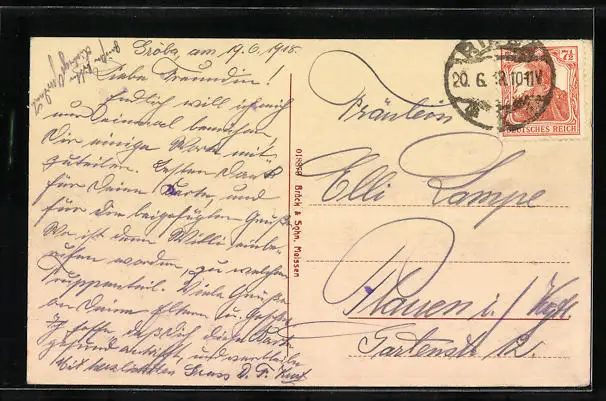 Gröba, am 19.6.1918.
Liebe Freundin!
Endlich will ich mich
nun einmal bemühen
Dir einige Worte mit-
zuteilen. Besten Dank
für Deine Karte, und
für die beigefügten Grüße.
Wo ist denn Willi einbe-
rufen worden, zu welchem
Truppenteil. Viele Grüße
an Deine Eltern u. Geschw.
Ich hoffe daß Dich diese Karte
gesund antrifft, und verbleibe
Mit herzlichsten Gruss D. F. Kurt
01866 Brück & Sohn, Meissen
RIESA
20.6.18.10-11V
7½
DEUTSCHES REICH
Fräulein
Elli Lampe
Plauen i./Vogtl.
Gartenstr. 12.